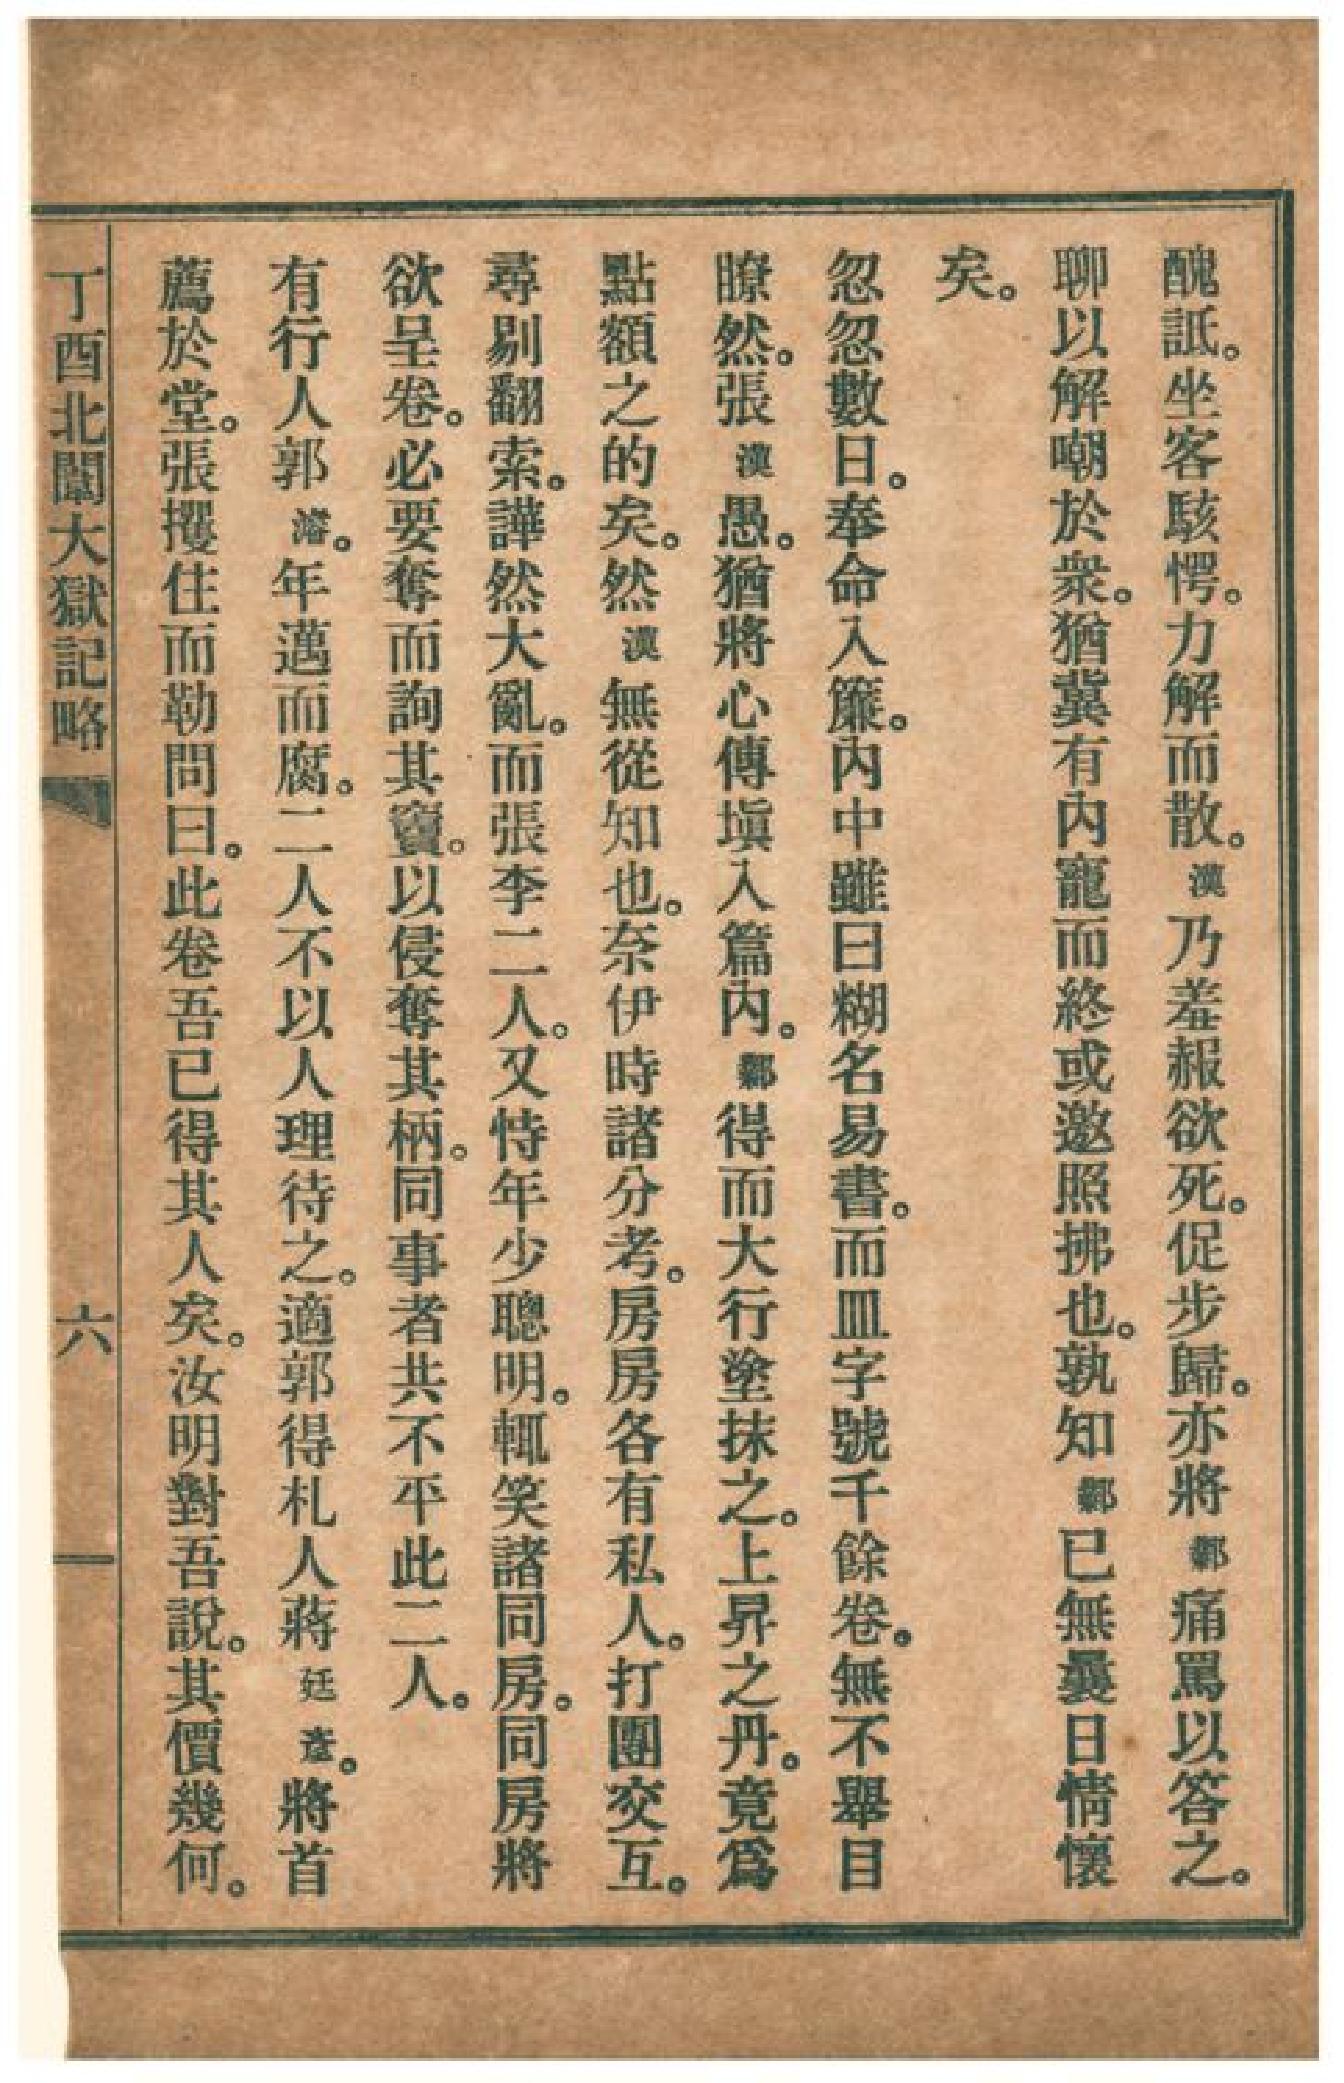 醜詆。坐客駭愕。力解而散。漢乃羞赧欲死。促步歸。亦將鄴痛罵以答之。
聊以解嘲於衆。猶冀有內寵而終或邀照拂也。孰知鄴已無曩日情懷
矣。
忽忽數日。奉命入簾。內中雖曰糊名易書。而皿字號千餘卷。無不舉目
瞭然。張漢愚。猶將心傳塡入篇內。鄴得而大行塗抹之。上昇之丹。竟爲
點額之的矣。然漢無從知也。奈伊時諸分考。房房各有私人。打團交互。
尋剔翻索。譁然大亂。而張李二人。又恃年少聰明。輒笑諸同房。同房將
欲呈卷。必要奪而詢其竇。以侵奪其柄。同事者共不平此二人。
有行人郭濬。年邁而腐。二人不以人理待之。適郭得札人蔣廷彥。將首
薦於堂。張攫住而勒問曰。此卷吾已得其人矣。汝明對吾說。其價幾何。
丁酉北闈大獄記略
六